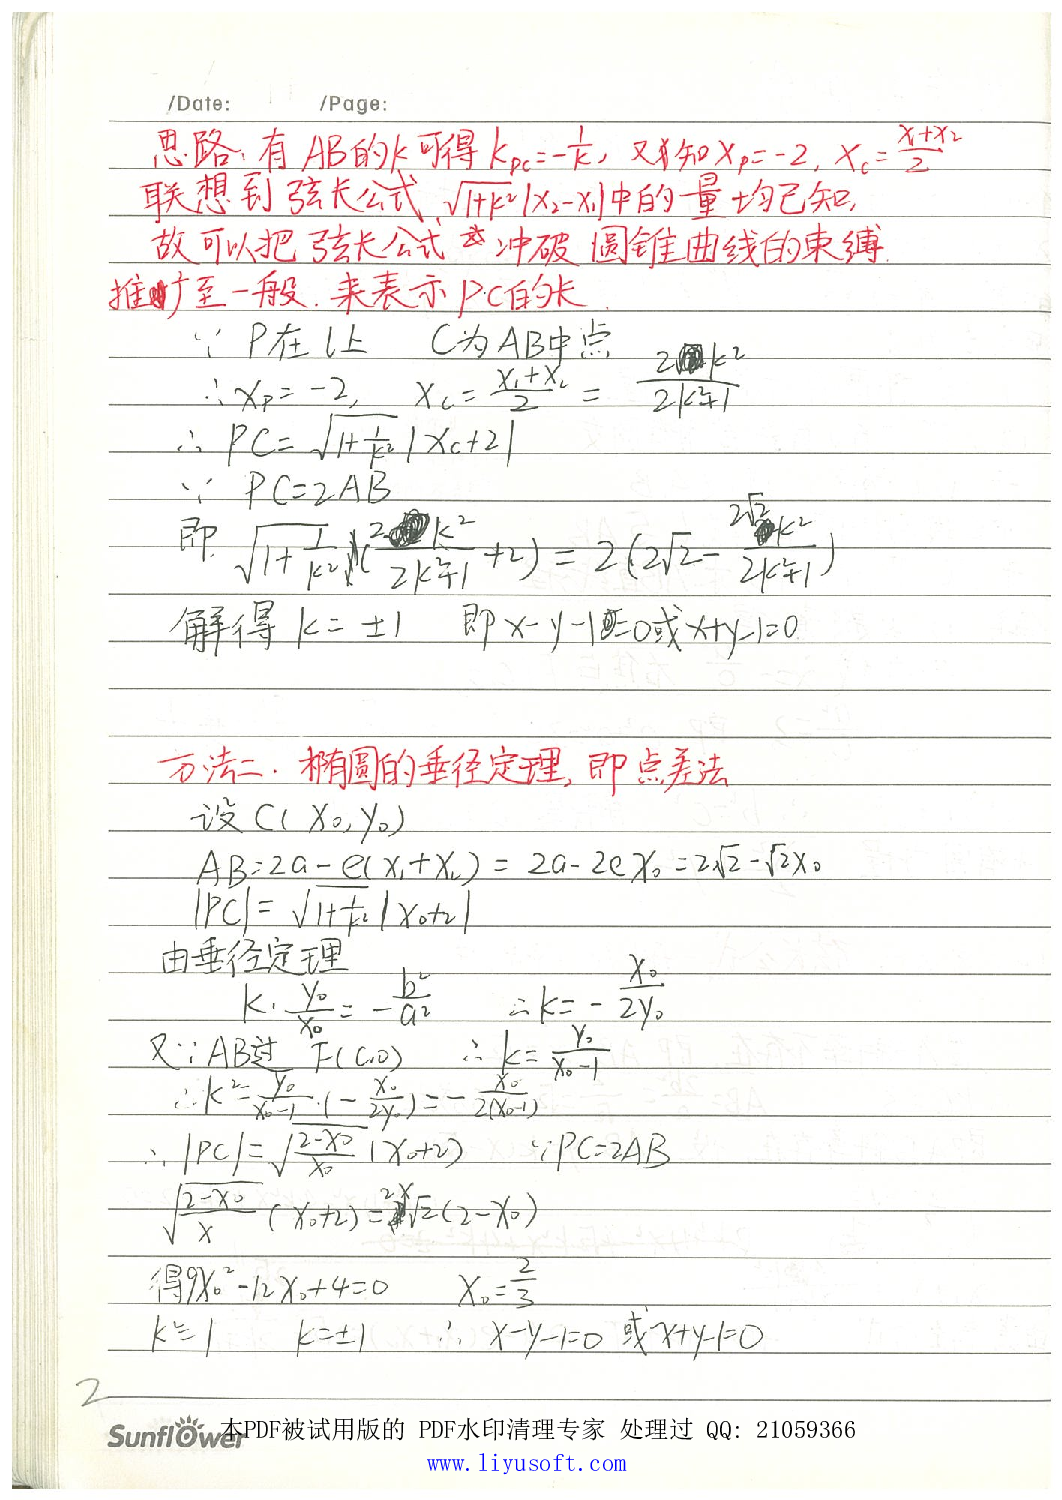 /Date: /Page:
思路:有AB的k可得k_PC=-1/k,又知x_P=-2,x_C=(x₁+x₂)/2
联想到弦长公式,√(1+k²)|x₂-x₁|中的量均已知,
故可以把弦长公式 冲破圆锥曲线的束缚
推广至一般.来表示PC的长.
∵ P在l上 C为AB中点
∴ x_P=-2, x_C=(x₁+x₂)/2=2k²/(2k²+1)
∴ PC=√(1+1/k²)|x_C+2|
∵ PC=2AB
即 √(1+1/k²)(2k²/(2k²+1)+2)=2(2√2-2√2k²/(2k²+1))
解得 k=±1 即x-y-1=0或x+y-1=0
方法二.椭圆的垂径定理,即点差法
设C(x₀,y₀)
AB=2a-e(x₁+x₂)=2a-2ex₀=2√2-√2x₀
|PC|=√(1+1/k²)|x₀+2|
由垂径定理
k·y₀/x₀=-b²/a² ∴k=-x₀/2y₀
又∵AB过F(c,0) ∴k=y₀/(x₀-1)
∴k²=y₀/(x₀-1)·(-x₀/2y₀)=-x₀/2(x₀-1)
∴|PC|=√((2-x₀)/x₀)(x₀+2) ∵PC=2AB
√((2-x₀)/x)(x₀+2)=2×√2(2-x₀)
得9x₀²-12x₀+4=0 x₀=2/3
k²=1 k=±1 ∴x-y-1=0或x+y-1=0
2
Sunflower
本PDF被试用版的 PDF水印清理专家 处理过 QQ: 21059366
www.liyusoft.com